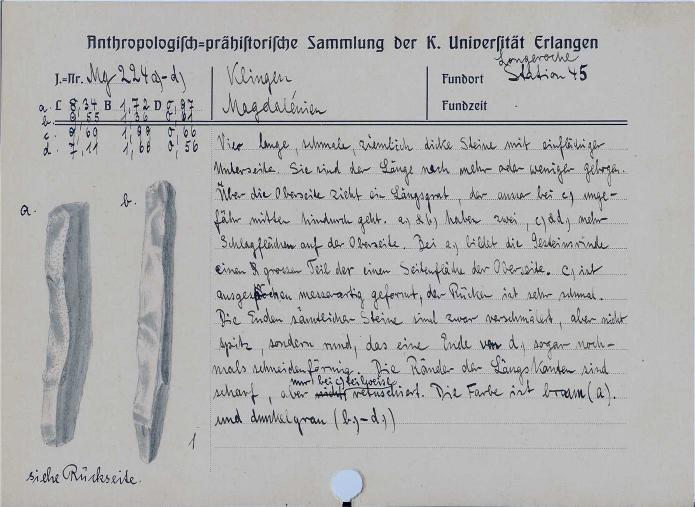 Anthropologisch=prähistorische Sammlung der K. Universität Erlangen
J.=Nr. Mg 224a)-d)
Klingen
Magdalénien
Fundort Longeroche
Station 45
Fundzeit
a. L 8,34 B 1,72 D 0,97
b. 9,55 1,36 0,61
c. 9,60 1,99 0,66
d. 7,11 1,68 0,56
Vier lange, schmale, ziemlich dicke Steine mit einflächiger
Unterseite. Sie sind der Länge nach mehr oder weniger gebogen.
Über die Oberseite zieht ein Längsgrat, der ausser bei c) unge-
fähr mitten hindurch geht. a) & b) haben zwei, c) & d) mehr
Schlagflächen auf der Oberseite. Bei a) bildet die Gesteinsrinde
einen grossen Teil der einen Seitenfläche der Oberseite. c) ist
ausgesprochen messerartig geformt, der Rücken ist sehr schmal.
Die Enden sämtlicher Steine sind zwar verschmälert, aber nicht
spitz, sondern rund, das eine Ende von d) sogar noch-
mals schneidenförmig. Die Ränder der Längskanten sind
scharf, aber nur bei c) teilweise retuschiert. Die Farbe ist braun (a).
und dunkelgrau (b)-d))
a.
b.
1
siehe Rückseite.